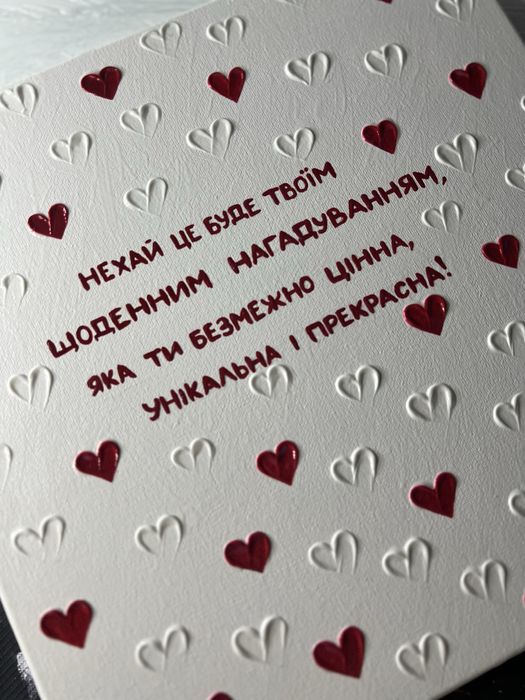 НЕХАЙ ЦЕ БУДЕ ТВОЇМ
ЩОДЕННИМ НАГАДУВАННЯМ,
ЯКА ТИ БЕЗМЕЖНО ЦІННА,
УНІКАЛЬНА І ПРЕКРАСНА!